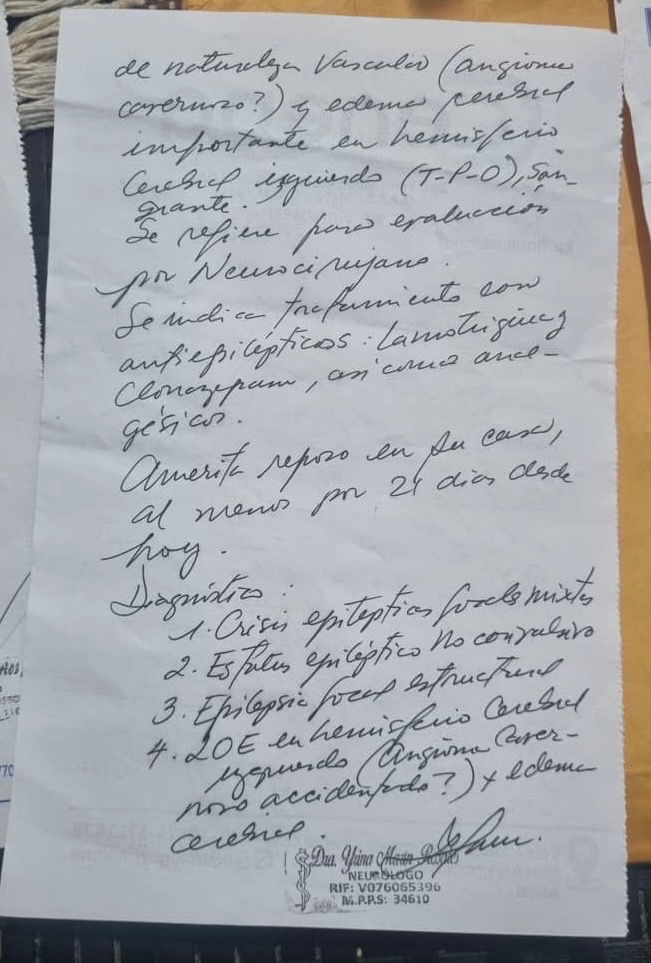 de naturaleza vascular (angioma
cavernoso?) y edema cerebral
importante en hemisferio
cerebral izquierdo (T-P-O), san-
grante.
Se refiere para evaluación
por Neurocirujano.
Se indica tratamiento con
antiepilépticos: Lamotrigina y
Clonazepam, así como anal-
gésicos.
Amerita reposo en su casa,
al menos por 21 días desde
hoy.
Diagnóstico:
1. Crisis epilépticas focales mixtas
2. Estatus epiléptico no convulsivo
3. Epilepsia focal estructural
4. LOE en hemisferio cerebral
izquierdo (Angioma caver-
noso accidentado?) + edema
cerebral.
Dra. Yrina
NEURÓLOGO
RIF: V076065396
M.P.P.S: 34610